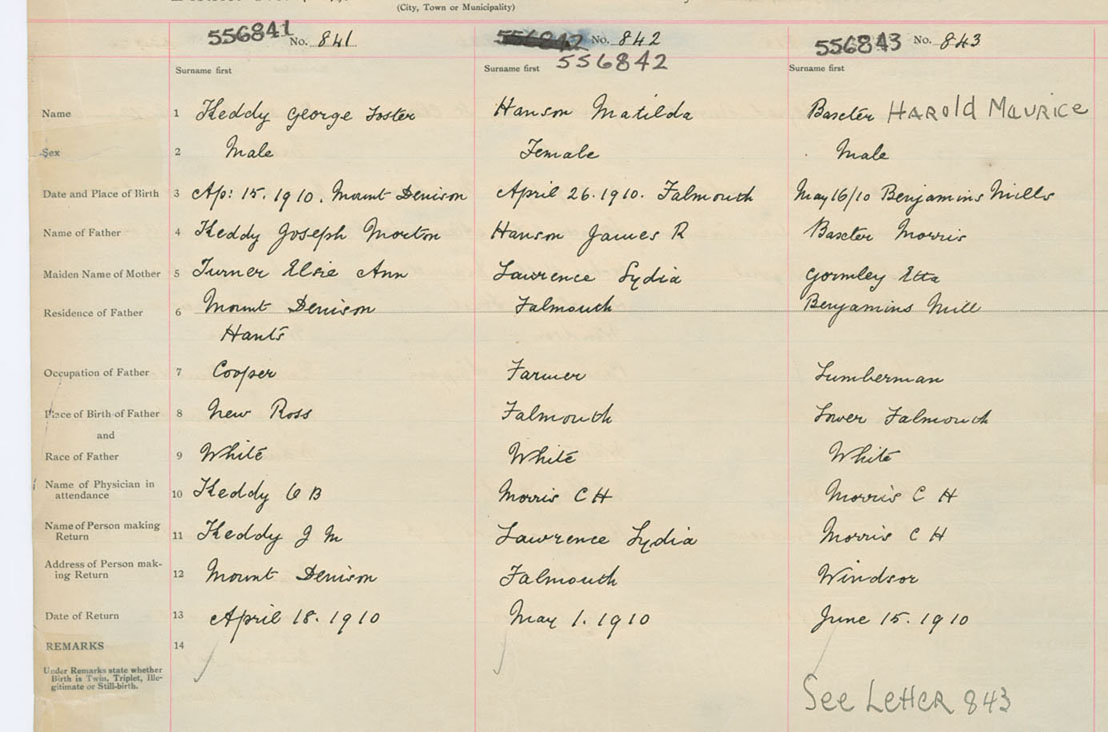 (City, Town or Municipality)
556841 No. 841 556842 No. 842 556843 No. 843
556842
Surname first Surname first Surname first
Name 1 Keddy George Foster Hanson Matilda Baxter Harold Maurice
Sex 2 Male Female Male
Date and Place of Birth 3 Ap: 15. 1910. Mount Denison April 26. 1910. Falmouth May 16/10 Benjamins Mills
Name of Father 4 Keddy Joseph Morton Hanson James R Baxter Morris
Maiden Name of Mother 5 Turner Elsie Ann Lawrence Lydia Gormley Etta
Residence of Father 6 Mount Denison Falmouth Benjamins Mill
Hants
Occupation of Father 7 Cooper Farmer Lumberman
Place of Birth of Father 8 New Ross Falmouth Lower Falmouth
and
Race of Father 9 White White White
Name of Physician in
attendance 10 Keddy O B Morris C H Morris C H
Name of Person making
Return 11 Keddy J M Lawrence Lydia Morris C H
Address of Person mak-
ing Return 12 Mount Denison Falmouth Windsor
Date of Return 13 April 18. 1910 May 1. 1910 June 15. 1910
REMARKS 14
Under Remarks state whether
Birth is Twin, Triplet, Ille-
gitimate or Still-birth.
See Letter 843